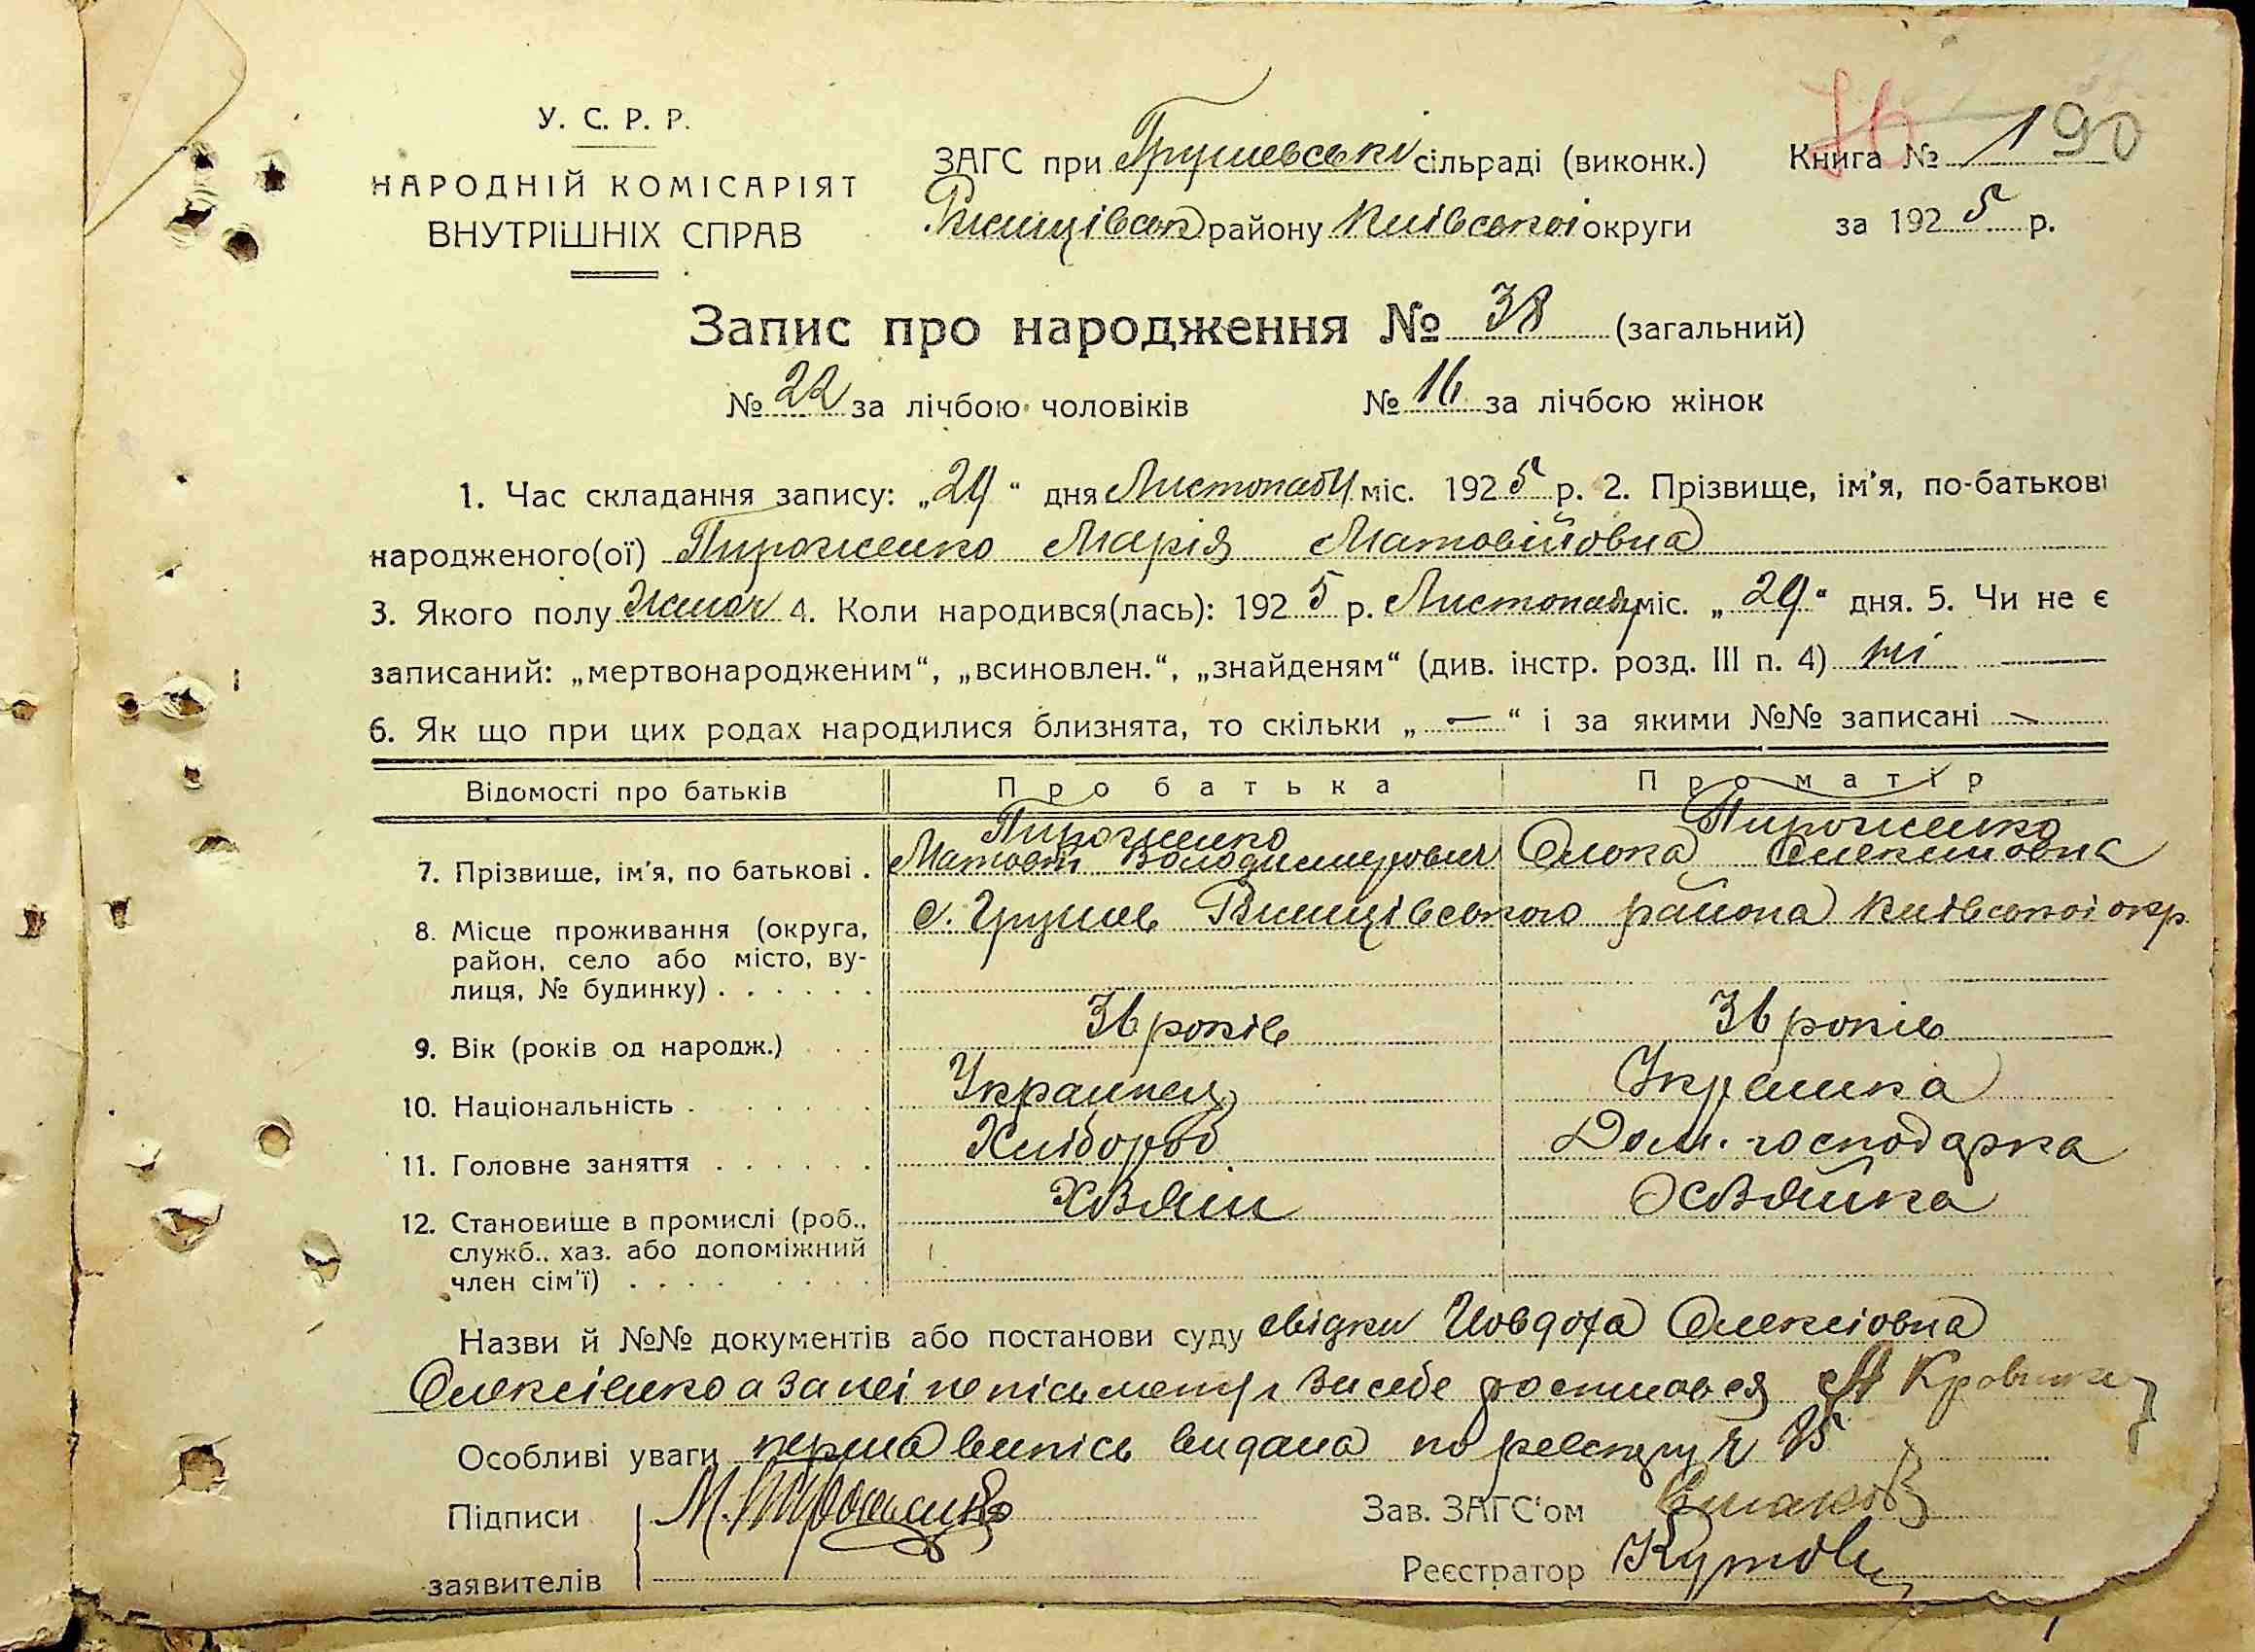 У. С. Р. Р.
НАРОДНІЙ КОМІСАРІЯТ
ВНУТРІШНІХ СПРАВ
ЗАГС при Грушевські сільраді (виконк.)
Ржищівськ району Київської округи
Книга № 1 90
за 1925 р.
Запис про народження № 38 (загальний)
№ 22 за лічбою чоловіків № 16 за лічбою жінок
1. Час складання запису: „29“ дня Листопаду міс. 1925 р. 2. Прізвище, ім’я, по-батькові
народженого(ої) Пироженко Марія Матовійовна
3. Якого полу 4. Коли народився(лась): 1925 р. Листопаду міс. „29“ дня. 5. Чи не є
записаний: „мертвонародженим“, „всиновлен.“, „знайденям“ (див. інстр. розд. III п. 4) ні
6. Як що при цих родах народилися близнята, то скільки „—“ і за якими №№ записані —
Відомості про батьків Про батька Про матір
Пироженко Пироженко
7. Прізвище, ім’я, по батькові . Матовій Володимирович Олексіовна
8. Місце проживання (округа, с. Грушів Ржищівського района Київської окр.
район, село або місто, ву-
лиця, № будинку) . . . . . .
9. Вік (років од народж.) . . . 36 років 36 років
10. Національність . . . . . . . Украинец Украинка
11. Головне заняття . . . . . . Хлібороб Дом. господарка
12. Становище в промислі (роб., Хозяин Хозяйка
служб., хаз. або допоміжний
член сім’ї) . . . . . . . .
Назви й №№ документів або постанови суду свідки Йовдоха Олексіовна
Олексієнко а за неі непісьменну и за себе росписався
Особливі уваги перша випісь видана по реєстру № 25
Підписи М. Пироженко Зав. ЗАГС‘ом
заявителів Реєстратор Кутовы